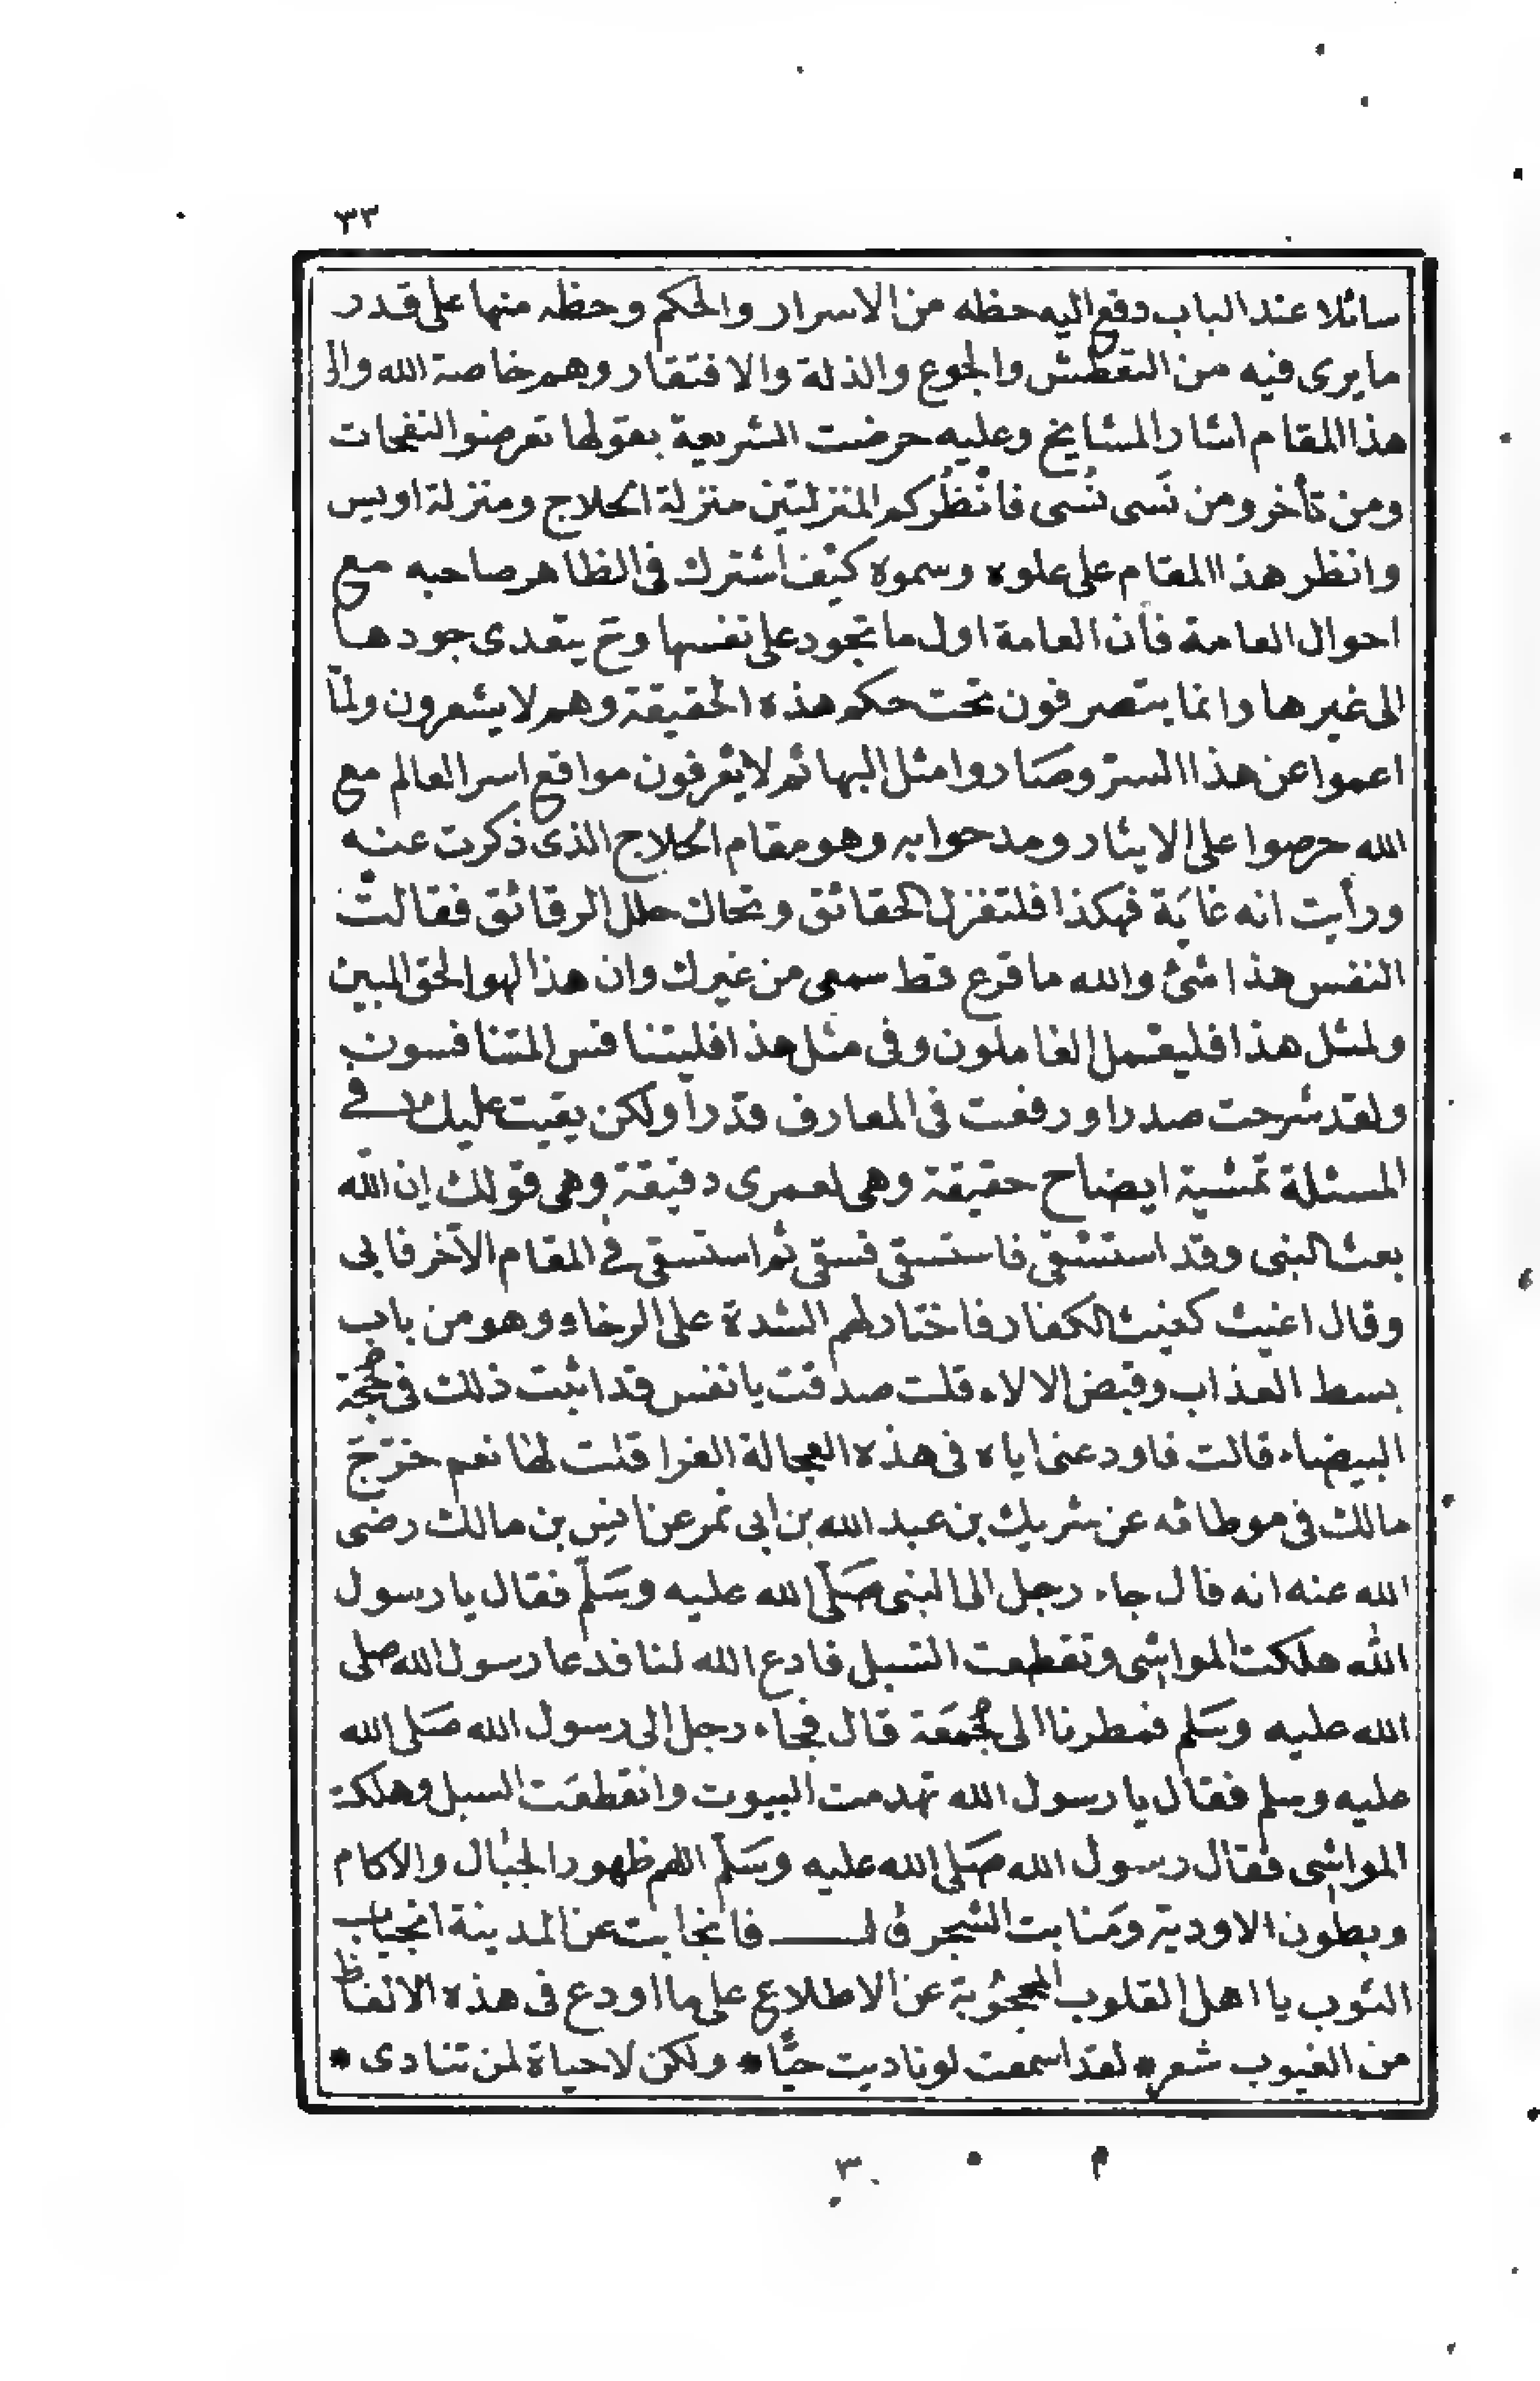 ٣٣
سائلا عند الباب دفع اليه حظه من الاسرار والحكم وحظه منها على قدر
ما يرى فيه من التعطش والجوع والذلة والافتقار وهم خاصة الله والى
هذا المقام اشار المشايخ وعليه حرضت الشريعة بقولها تعرضوا لنفحات
ومن تأخر ومن نَسى نُسى فانْظُركم المنزلتين منزلة الحلاج ومنزلة اويس
وانظر هذا المقام على علوه وسموه كيف اشترك فى الظاهر صاحبه مع
احوال العامة فأن العامة اول ما تجود على نفسها وح يتعدى جودها
الى غيرها وانما يتصرفون تحت حكم هذه الحقيقة وهم لا يشعرون ولمّا
اعموا عن هذا السرّ وصَاروا مثل البهائم لا يعْرفون مواقع اسرا لعالم مع
الله حرصوا على الايثار ومدحوا به وهو مقام الحلاج الذى ذكرت عنه
ورأيت انه غاية فهكذا فلتغزل الحقائق وتحاك حلل الرقائق فقالت
النفس هذا شئ والله ما قرع قط سمعى من غيرك وان هذا لهو الحق المبين
ولمثل هذا فليعْمل العاملون وفى مثل هذا فليتنافس المتنافسون
ولقد شرحت صدرا ورفعت فى المعارف قدْراً ولكن بقيت عليك فى
المسئلة تمشية ايضاح حقيقة وهى لعمرى دقيقة وهى قولك ان الله
بعث النبى وقد استشقى فاستسقى فسقى ثم استسقى فى المقام الآخر فابى
وقال اغيث كغيث الكفار فاختار لهم الشدة على الرخاء وهو من باب
بسط العذاب وقبض الالاء قلت صدقت يا نفس قد اثبت ذلك فى حجة
البيضاء قالت فاودعنى اياه فى هذه العجالة الغرا قلت لها نعم خرّج
مالك فى موطائه عن شريك بن عبد الله بن ابى نمر عن انس بن مالك رضى
الله عنه انه قال جاء رجل الى النبى صَلّى الله عليه وسَلّم فقال يا رسول
الله هلكت المواشى وتقطعت السبل فادع الله لنا فدعا رسول الله صلى
الله عليه وسَلم فمطرنا الى جُمَعَة قال فجاء رجل الى رسول الله صَلى الله
عليه وسلم فقال يا رسول الله تهدمت البيوت وانقطعَت السبل وهلكت
المواشى فقال رسول الله صَلى الله عليه وسَلّم اللهم ظهور الجبال والاكام
وبطون الاودية ومَنابت الشجر قال فانجابت عن المدينة انجياب
الثوب يا اهل القلوب المحجوُبة عن الاطلاع على ما اودع فى هذه الالفاظ
من الغيوب شعر * لقد اسمعت لو ناديت حيًّا * ولكن لا حياة لمن تنادى *
٣٠ م